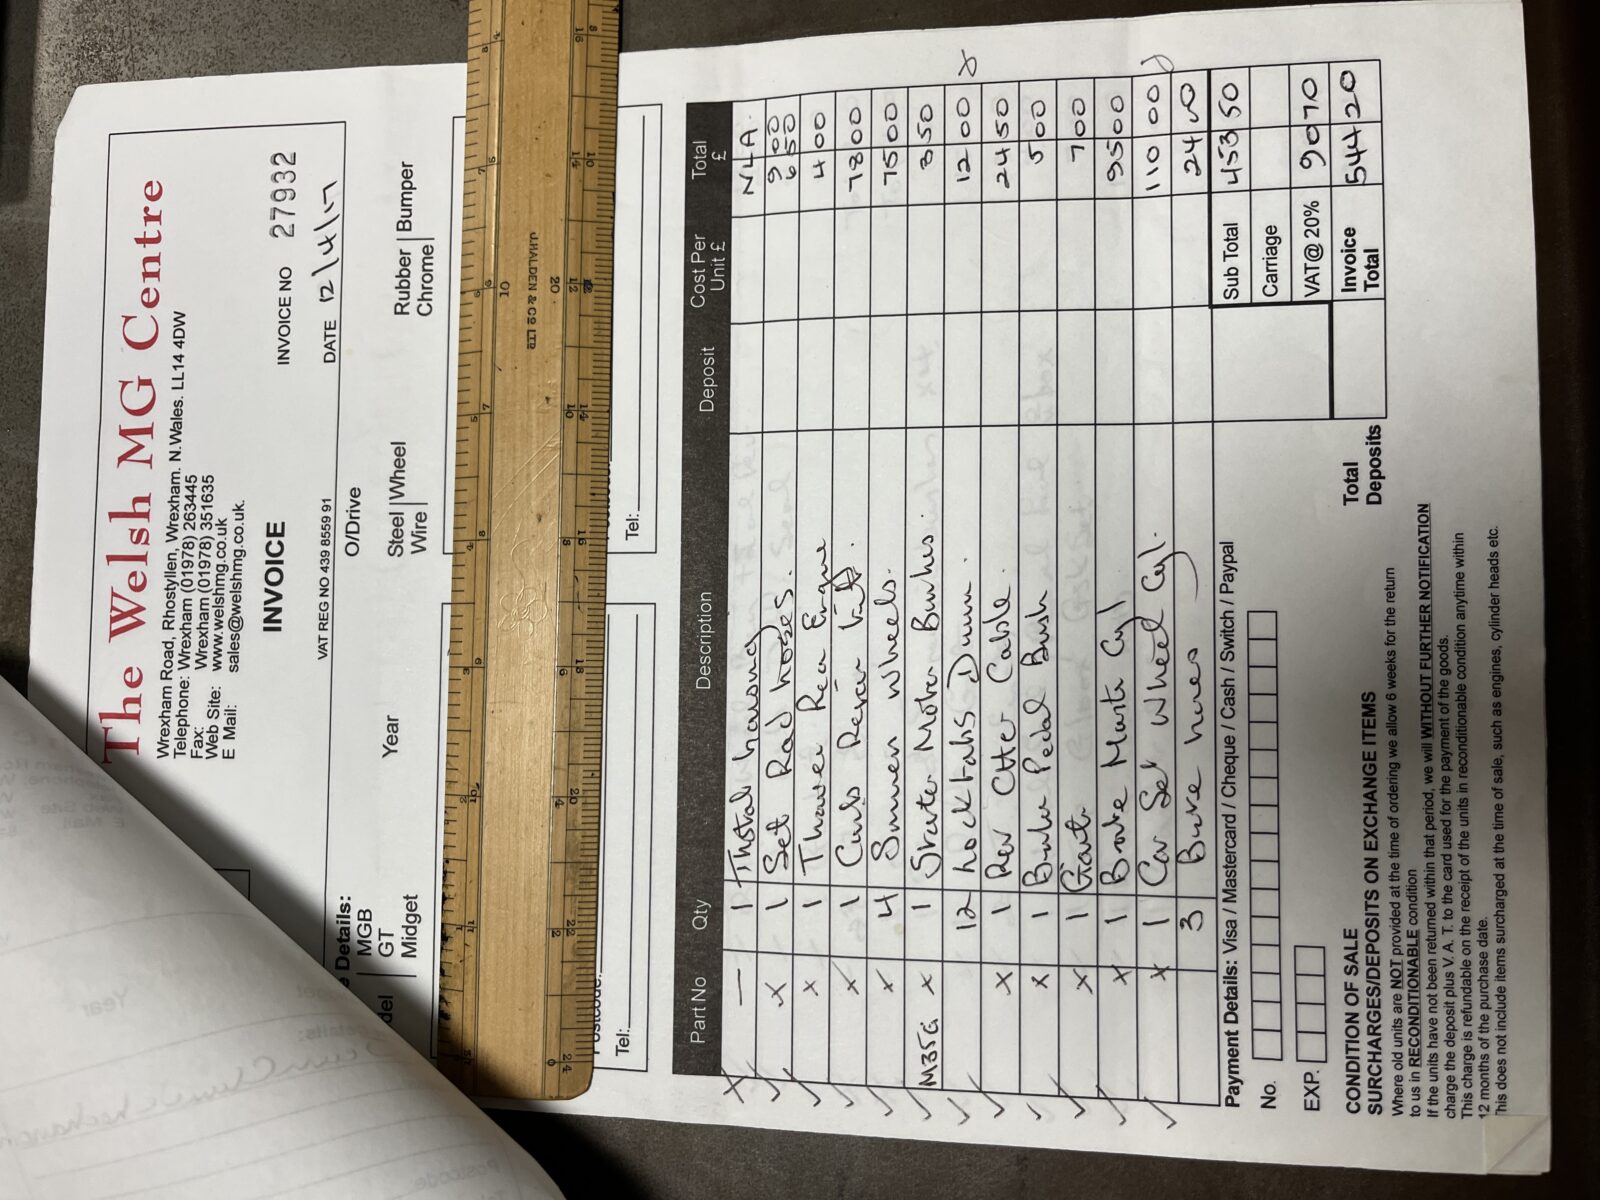 The Welsh MG Centre
Wrexham Road, Rhostyllen, Wrexham. N.Wales. LL14 4DW
Telephone: Wrexham (01978) 263445
Fax: Wrexham (01978) 351635
Web Site: www.welshmg.co.uk
E Mail: sales@welshmg.co.uk.
INVOICE
INVOICE NO 27932
DATE 12/4/17
VAT REG NO 439 8559 91
Details:
MGB
GT
Midget
Year
O/Drive
Steel Wheel
Wire
Rubber Bumper
Chrome
J.HALDEN & Co LTD
Tel:
Tel:
Part No Qty Description Deposit Cost Per Unit £ Total £
— 1 housing NLA
x 1 Set Rad hoses. 9 00 6 50
x 1 Rear Engine 4 00
x 1 Carb 78 00
x 4 Wheels. 75 00
M35G x 1 Starter Motor Bushes. 3 50
12 Lock tabs 12 00
x 1 Rev Cable. 24 50
x 1 Pedal Bush 5 00
x 1 7 00
x 1 Brake Master Cyl 95 00
x 1 Car Set Wheel Cyl. 110 00
3 Brake hoses 24 00
Sub Total 453 50
Carriage
VAT@ 20% 90 70
Invoice Total 544 20
Total Deposits
Payment Details: Visa / Mastercard / Cheque / Cash / Switch / Paypal
No.
EXP.
CONDITION OF SALE
SURCHARGES/DEPOSITS ON EXCHANGE ITEMS
Where old units are NOT provided at the time of ordering we allow 6 weeks for the return
to us in RECONDITIONABLE condition
If the units have not been returned within that period, we will WITHOUT FURTHER NOTIFICATION
charge the deposit plus V. A. T. to the card used for the payment of the goods.
This charge is refundable on the receipt of the units in reconditionable condition anytime within
12 months of the purchase date.
This does not include items surcharged at the time of sale, such as engines, cylinder heads etc.